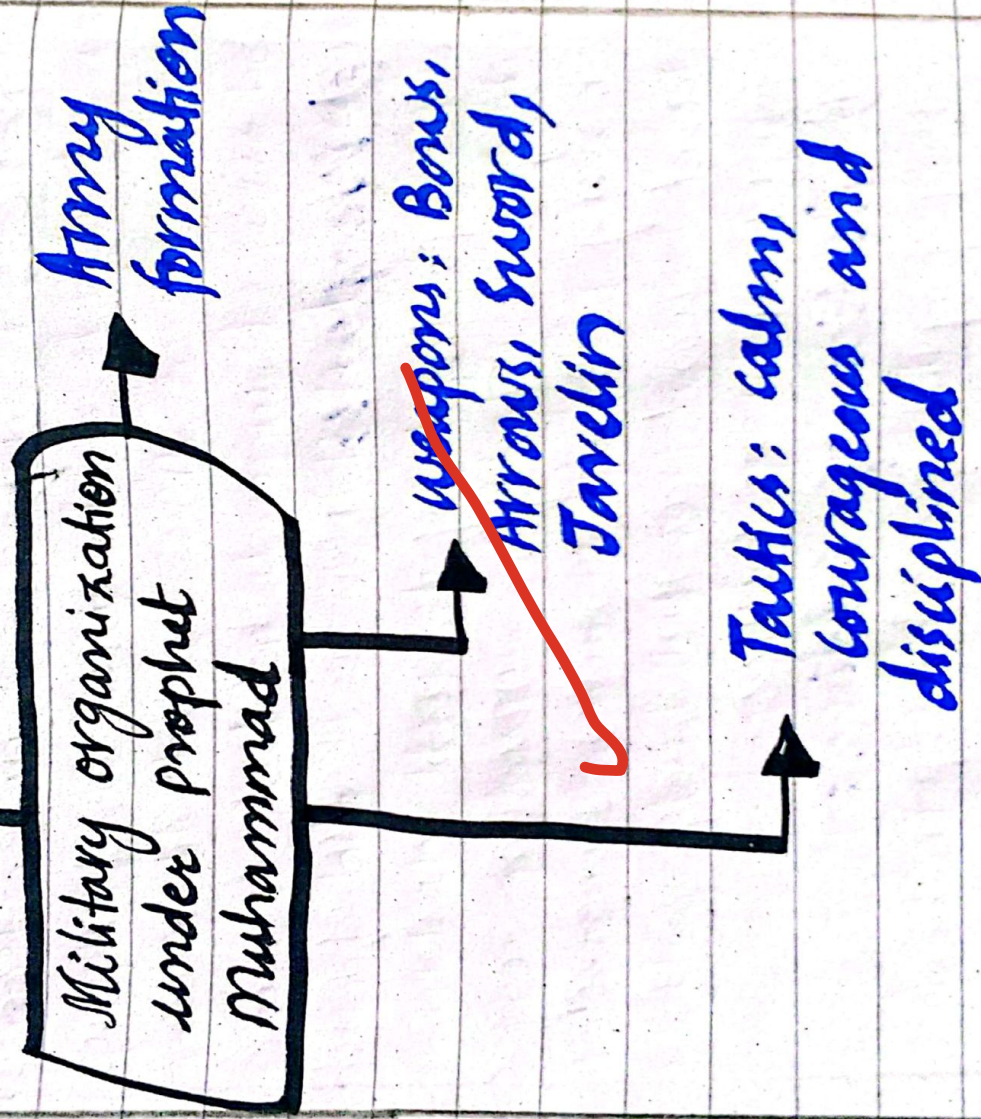 Military organization
under prophet
Muhammad
Army
formation
weapons: Bows,
Arrows, sword,
Javelin
Tactics: calm,
courageous and
disciplined